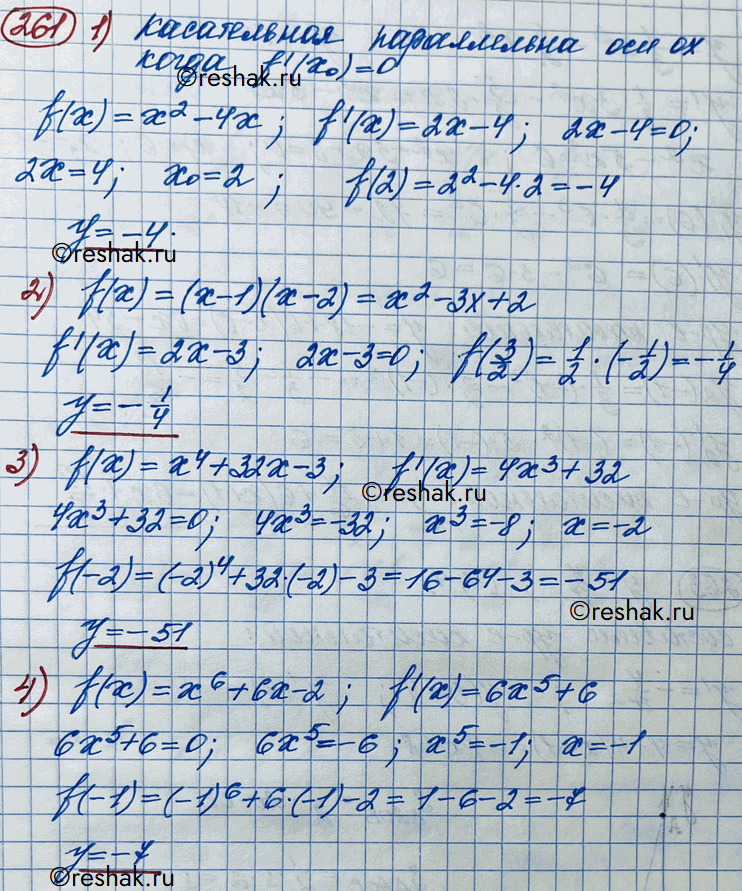 261 1) касательная параллельна оси ох
когда f'(x₀)=0
©reshak.ru
f(x)=x²-4x; f'(x)=2x-4; 2x-4=0;
2x=4; x₀=2; f(2)=2²-4·2=-4
y=-4.
©reshak.ru
2) f(x)=(x-1)(x-2)=x²-3x+2
f'(x)=2x-3; 2x-3=0; f(3/2)=1/2·(-1/2)=-1/4
y=-1/4
3) f(x)=x⁴+32x-3; f'(x)=4x³+32
©reshak.ru
4x³+32=0; 4x³=-32; x³=-8; x=-2
f(-2)=(-2)⁴+32·(-2)-3=16-64-3=-51
©reshak.ru
y=-51
4) f(x)=x⁶+6x-2; f'(x)=6x⁵+6
6x⁵+6=0; 6x⁵=-6; x⁵=-1; x=-1
f(-1)=(-1)⁶+6·(-1)-2=1-6-2=-7
y=-7
©reshak.ru